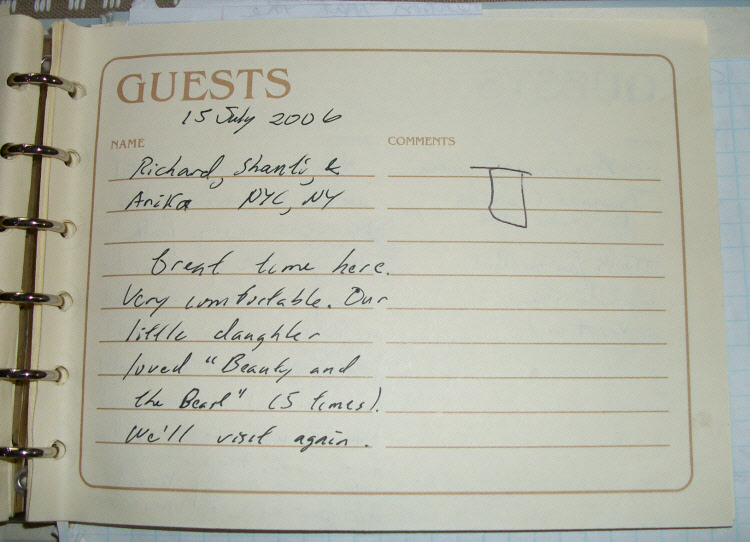 GUESTS
15 July 2006
NAME
COMMENTS
Richard, Shanti, &
Anika NYC, NY
Great time here.
Very comfortable. Our
little daughter
loved "Beauty and
the Beast" (5 times).
We'll visit again.